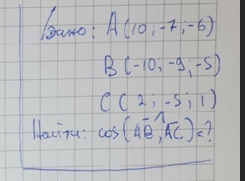 Дано: A(10; -7; -6)
B(-10; -9; -5)
C(2; -5; 1)
Найти: cos(AB^AC) = ?